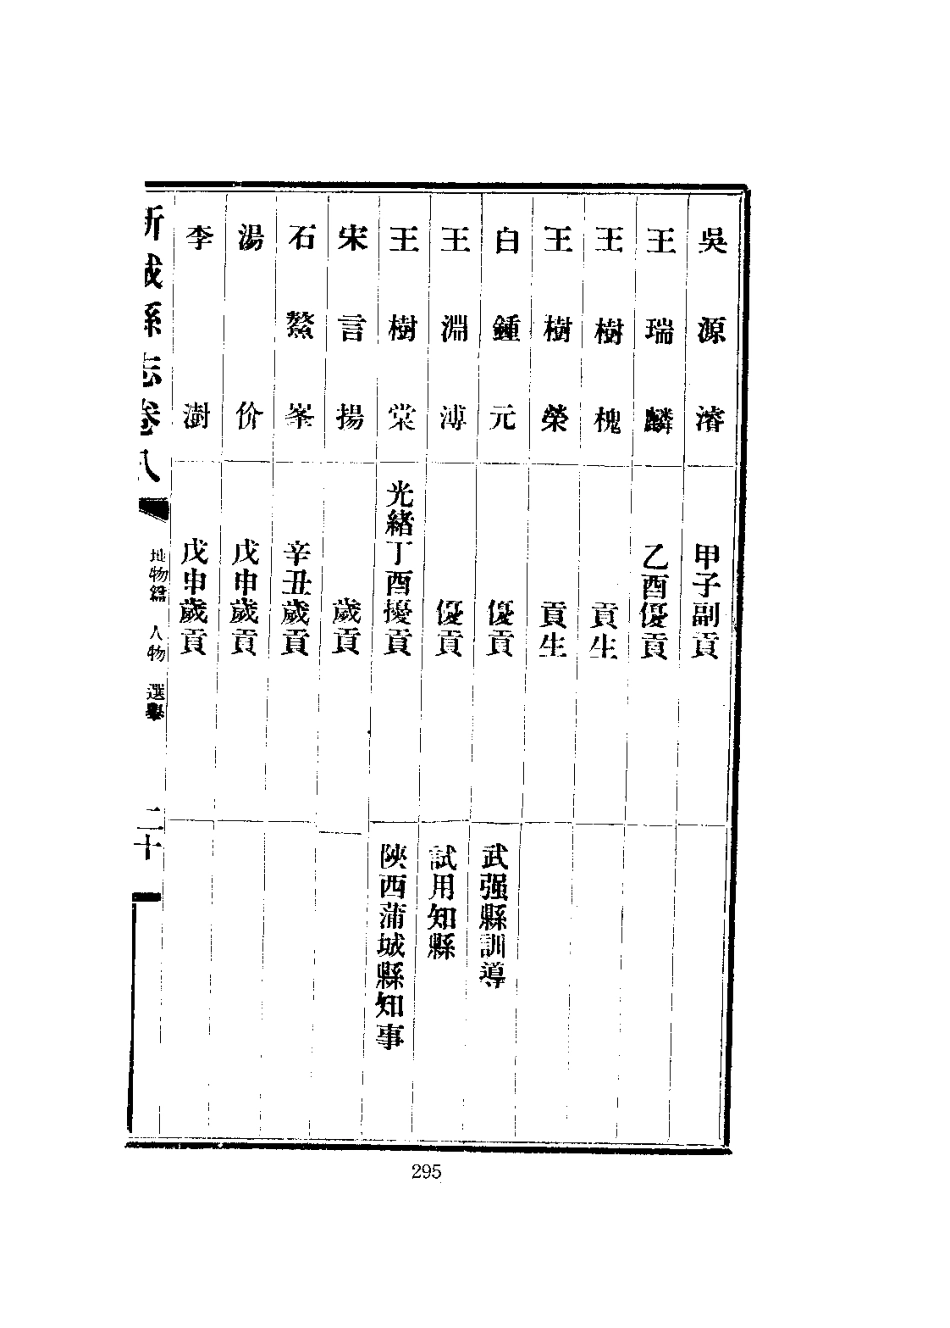 吳源濬 甲子副貢
王瑞麟 乙酉優貢
王樹槐 貢生
王樹榮 貢生
白鍾元 優貢 武强縣訓導
王淵溥 優貢 試用知縣
王樹棠 光緒丁酉擾貢 陝西蒲城縣知事
宋言揚 歲貢
石鰲峯 辛丑歲貢
湯价 戊申歲貢
李澍 戊申歲貢
新城縣志卷八 地物篇 人物 選舉 二十
295